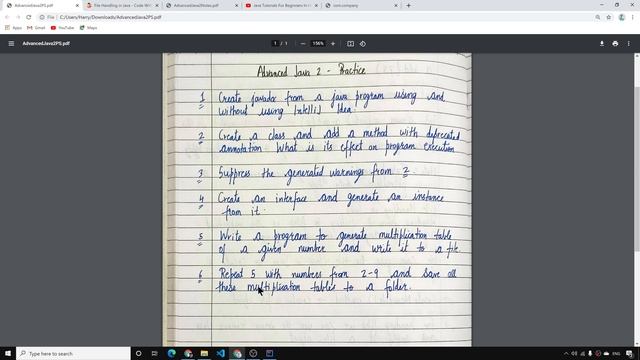 AdvancedJava2PS.pdf
File Handling in Java - Code With
AdvancedJava2Notes.pdf
Java Tutorials For Beginners In H
com.company
C:/Users/Harry/Downloads/AdvancedJava2PS.pdf
Apps
Gmail
YouTube
Maps
AdvancedJava2PS.pdf
1 / 1
156%
Advanced Java 2 - Practice
1 Create javadoc from a java program using and
without using Intellij Idea.
2 Create a class and add a method with deprecated
annotation What is its effect on program execution
3 Suppress the generated warnings from 2
4 Create an interface and generate an instance
from it.
5 Write a program to generate multiplication table
of a given number and write it to a file.
6 Repeat 5 with numbers from 2-9 and save all
these multiplication tables to a folder.
Type here to search
ENG